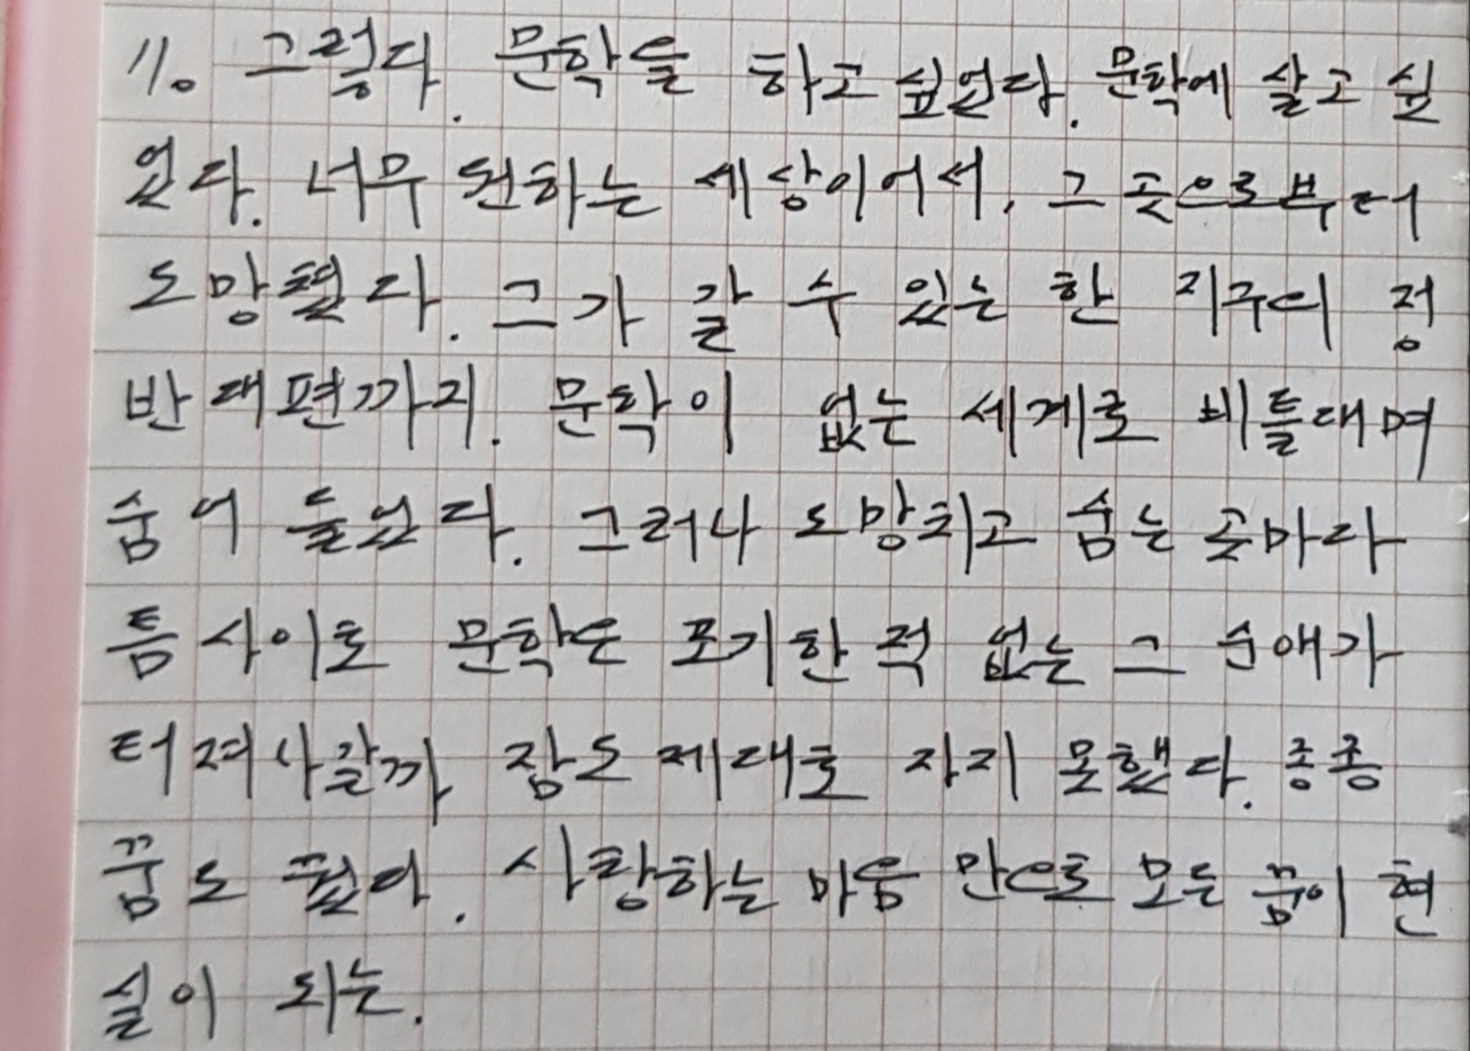 11. 그렇다. 문학을 하고 싶었다. 문학에 살고 싶
었다. 너무 원하는 세상이어서, 그 곳으로부터
도망쳤다. 그가 갈 수 있는 한 지구의 정
반대편까지. 문학이 없는 세계로 비틀대며
숨어 들었다. 그러나 도망치고 숨는 곳마다
틈 사이로 문학은 포기한 적 없는 그 순애가
터져나갈까 잠도 제대로 자지 못했다. 종종
꿈도 꿨다. 사랑하는 마음 만으로 모든 꿈이 현
실이 되는.